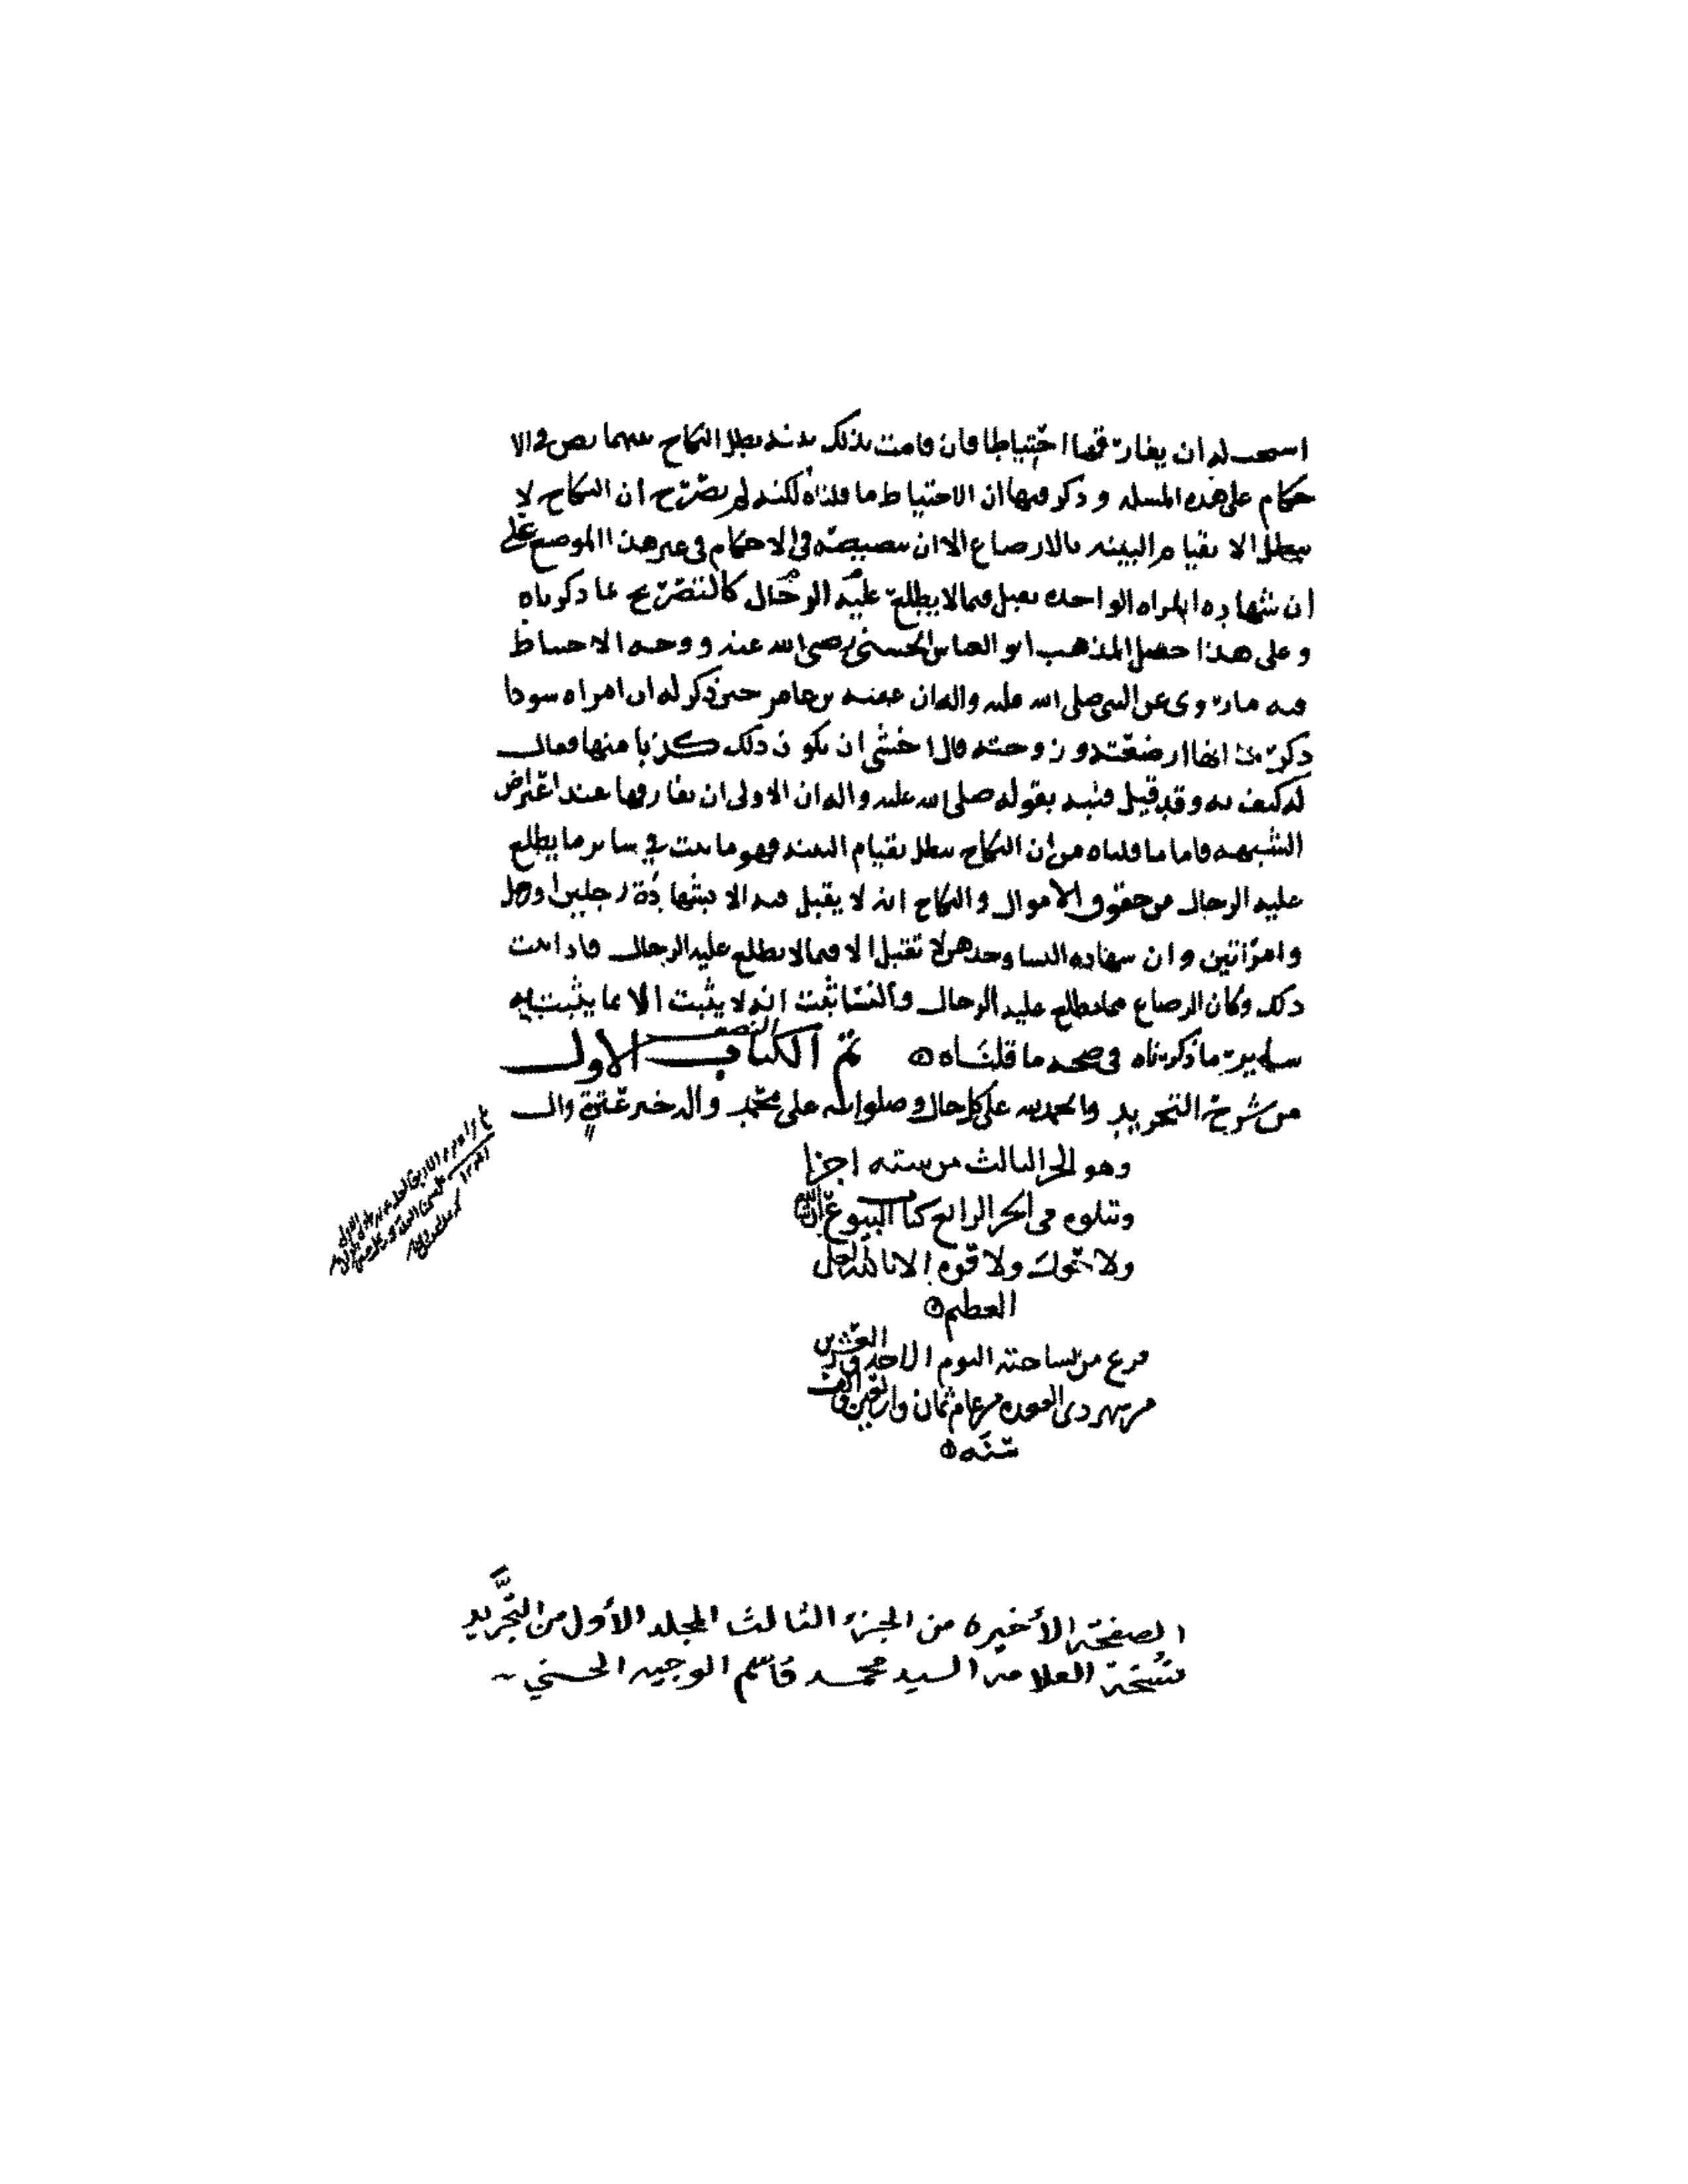 استحب له ان يفارقها احتياطا فان قامت بذلك بينه بطل النكاح بينهما نص في الا
حكام على هذه المسله وذكر فيها ان الاحتياط ما قلناه لكنه لم يصرح ان النكاح لا
يبطل الا بقيام البينه بالارضاع الا ان تنصيصه في الاحكام في غير هذا الموضع على
ان شهاده المراه الواحده تقبل فيما لا يطلع عليه الرجال كالتصريح بما ذكرناه
وعلى هذا حصل المذهب ابو العباس الحسني رضي الله عنه ووجه الاحتياط
فيه ما روي عن النبي صلى الله عليه واله ان عقبه بن عامر حين ذكر له ان امراه سودا
ذكرت انها ارضعته وزوجته قال اخشى ان يكون ذلك كذبا منها فقال
له كيف به وقد قيل فنبه بقوله صلى الله عليه واله ان الاولى ان يفارقها عند اعتراض
الشبهه فاما ما قلناه من ان النكاح يبطل بقيام البينه فهو ما ثبت في سائر ما يطلع
عليه الرجال من حقوق الاموال والنكاح انه لا يقبل فيه الا شهادة رجلين او رجل
وامراتين وان شهاده النسا وحدهن لا تقبل الا فيما لا يطلع عليه الرجال فاذا ثبت
ذلك وكان الرضاع مما يطلع عليه الرجال والنسا ثبت انه لا يثبت الا بما يثبت به
سائر ما ذكرناه في صحه ما قلناه تم الكتاب النصف الاول
من شرح التحريد والحمد لله على كل حال وصلواته على محمد واله خير عترة وال
وهو الجز الثالث من سته اجزا
ويتلوه في الجز الرابع كتاب البيوع ان شا الله
ولا حول ولا قوه الا بالله العلي
العظيم
فرغ من نساخته اليوم الاحد العشرين
من شهر ذي القعده من عام ثمان واربعين والف
سنه
الصفحة الأخيرة من الجزء الثالث المجلد الأول من التجريد
نسخة العلامه السيد محمد قاسم الوجيه الحسني